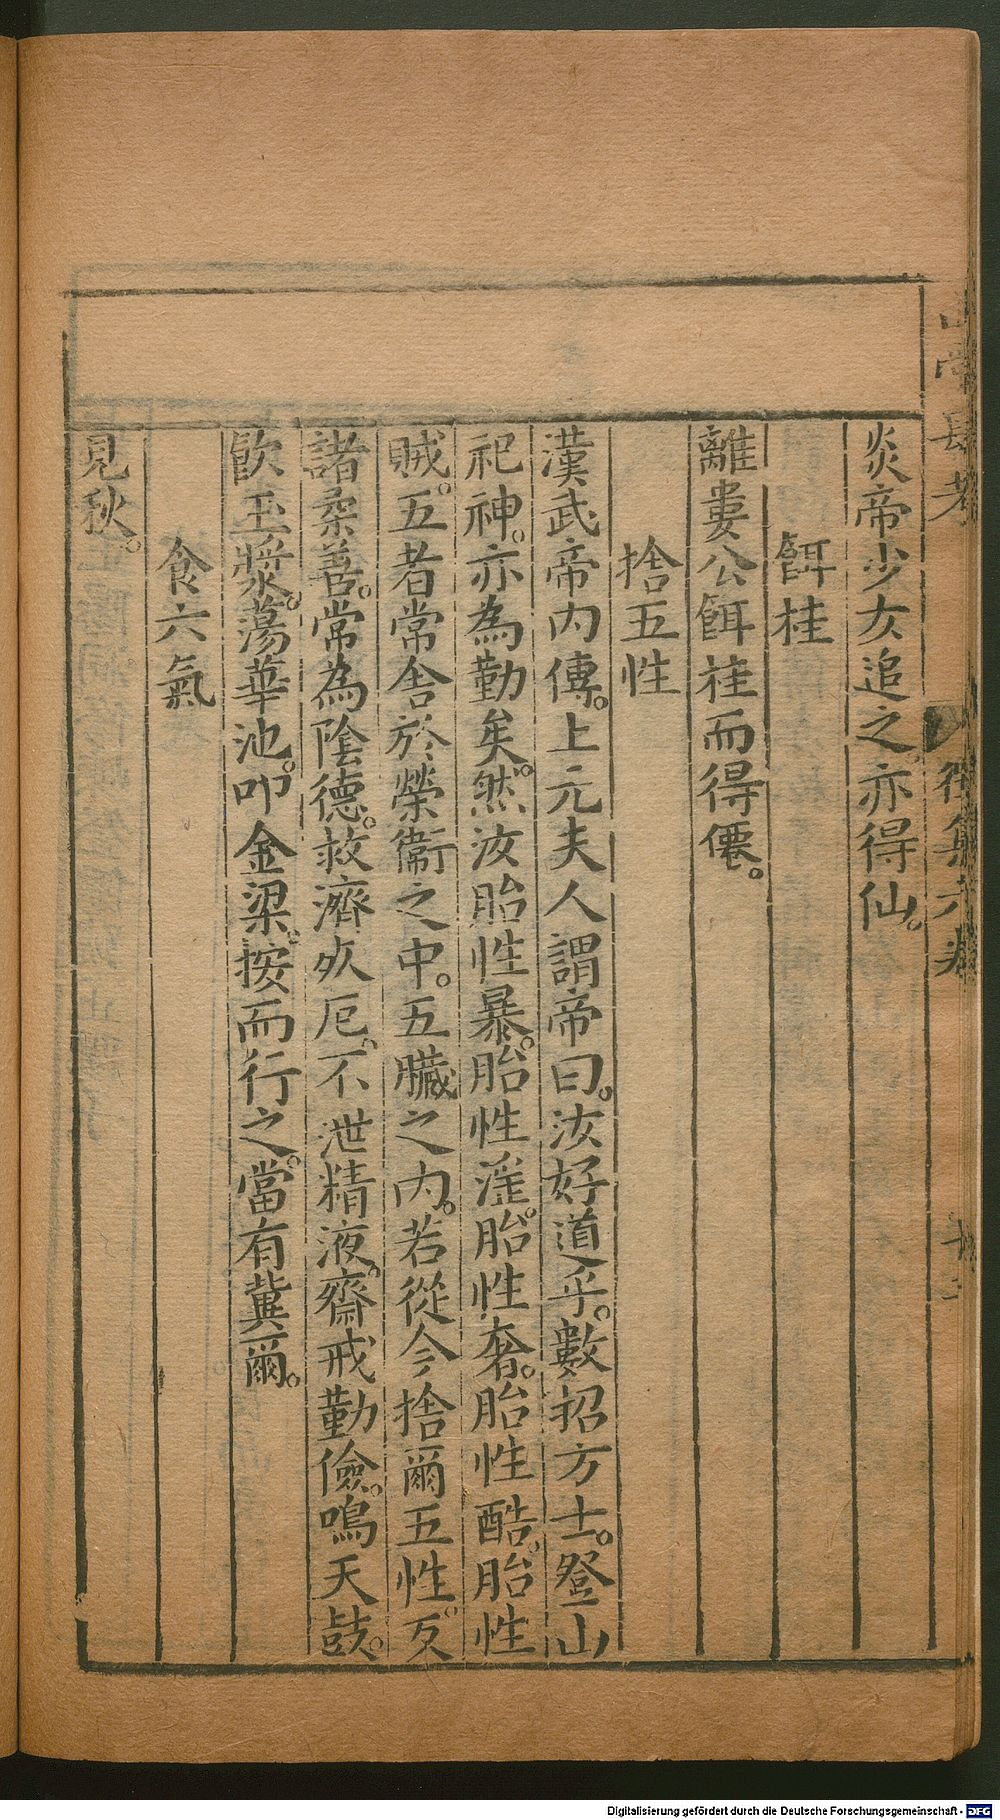 炎帝少女追之亦得仙。
餌桂
離婁公餌桂而得僊。
捨五性
漢武帝內傳。上元夫人謂帝曰。汝好道乎。數招方士。登山
祀神。亦為勤矣。然汝胎性暴。胎性淫。胎性奢。胎性酷。胎性
賊。五者常舍於榮衞之中。五臟之內。若從今捨爾五性。反
諸柔善。常為陰德。救濟死厄。不泄精液。齋戒勤儉。鳴天鼓。
飲玉漿。蕩華池。叩金梁。按而行之。當有冀爾。
食六氣
見秋。
山堂肆考
徵集 六卷
Digitalisierung gefördert durch die Deutsche Forschungsgemeinschaft - DFG